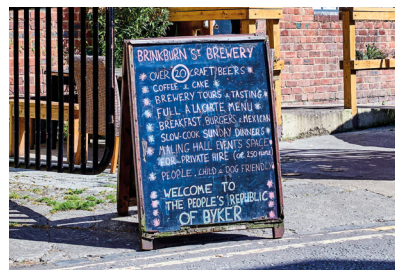 BRINKBURN ST BREWERY
OVER 20 CRAFT BEERS
COFFEE & CAKE
BREWERY TOURS & TASTING
FULL A LA CARTE MENU
BREAKFAST, BURGERS & MEXICAN
SLOW-COOK SUNDAY DINNERS
MALING HALL EVENTS SPACE
FOR PRIVATE HIRE (UP 250
PEOPLE, CHILD & DOG FRIENDLY
WELCOME TO
THE PEOPLE'S REPUBLIC
OF BYKER